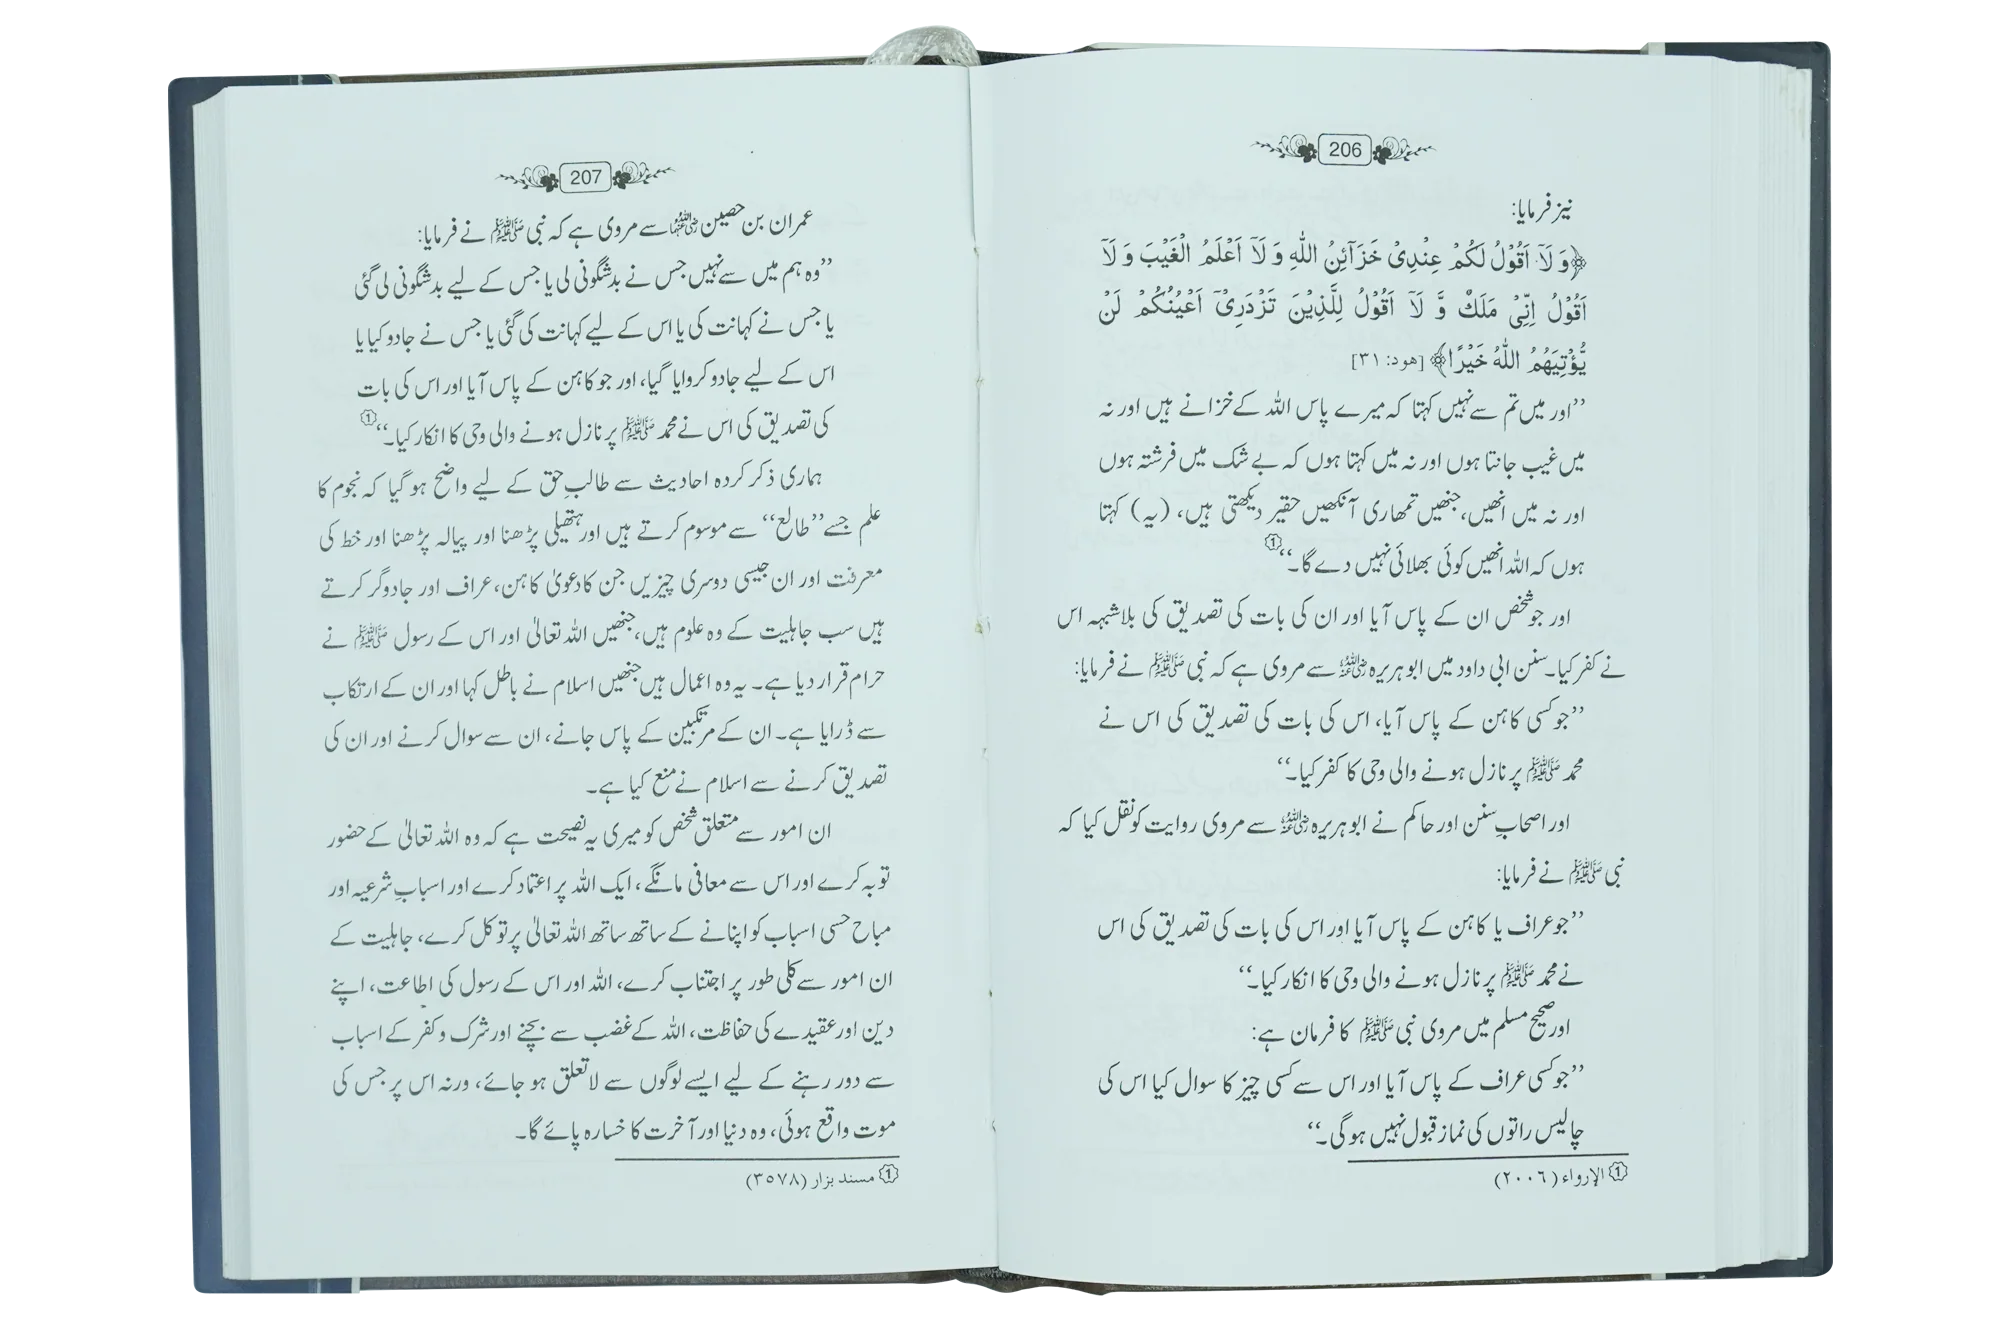 206
نیز فرمایا:
﴿وَ لَاۤ اَقُوْلُ لَكُمْ عِنْدِیْ خَزَآئِنُ اللّٰهِ وَ لَاۤ اَعْلَمُ الْغَیْبَ وَ لَاۤ
اَقُوْلُ اِنِّیْ مَلَكٌ وَّ لَاۤ اَقُوْلُ لِلَّذِیْنَ تَزْدَرِیْۤ اَعْیُنُكُمْ لَنْ
یُّؤْتِیَهُمُ اللّٰهُ خَیْرًا﴾ [هود: ٣١]
’’اور میں تم سے نہیں کہتا کہ میرے پاس اللہ کے خزانے ہیں اور نہ
میں غیب جانتا ہوں اور نہ میں کہتا ہوں کہ بے شک میں فرشتہ ہوں
اور نہ میں انھیں، جنھیں تمھاری آنکھیں حقیر دیکھتی ہیں، (یہ) کہتا
ہوں کہ اللہ انھیں کوئی بھلائی نہیں دے گا۔‘‘ ①
اور جو شخص ان کے پاس آیا اور ان کی بات کی تصدیق کی بلاشبہہ اس
نے کفر کیا۔ سنن ابی داود میں ابو ہریرہ رضی اللہ عنہ سے مروی ہے کہ نبی ﷺ نے فرمایا:
’’جو کسی کاہن کے پاس آیا، اس کی بات کی تصدیق کی اس نے
محمد ﷺ پر نازل ہونے والی وحی کا کفر کیا۔‘‘
اور اصحابِ سنن اور حاکم نے ابو ہریرہ رضی اللہ عنہ سے مروی روایت کو نقل کیا کہ
نبی ﷺ نے فرمایا:
’’جو عراف یا کاہن کے پاس آیا اور اس کی بات کی تصدیق کی اس
نے محمد ﷺ پر نازل ہونے والی وحی کا انکار کیا۔‘‘
اور صحیح مسلم میں مروی نبی ﷺ کا فرمان ہے:
’’جو کسی عراف کے پاس آیا اور اس سے کسی چیز کا سوال کیا اس کی
چالیس راتوں کی نماز قبول نہیں ہوگی۔‘‘
① الإرواء (٢٠٠٦)
207
عمران بن حصین رضی اللہ عنہما سے مروی ہے کہ نبی ﷺ نے فرمایا:
’’وہ ہم میں سے نہیں جس نے بدشگونی لی یا جس کے لیے بدشگونی لی گئی
یا جس نے کہانت کی یا اس کے لیے کہانت کی گئی یا جس نے جادو کیا یا
اس کے لیے جادو کروایا گیا، اور جو کاہن کے پاس آیا اور اس کی بات
کی تصدیق کی اس نے محمد ﷺ پر نازل ہونے والی وحی کا انکار کیا۔‘‘ ①
ہماری ذکر کردہ احادیث سے طالبِ حق کے لیے واضح ہو گیا کہ نجوم کا
علم جسے ’’طالع‘‘ سے موسوم کرتے ہیں اور ہتھیلی پڑھنا اور پیالہ پڑھنا اور خط کی
معرفت اور ان جیسی دوسری چیزیں جن کا دعویٰ کاہن، عراف اور جادوگر کرتے
ہیں سب جاہلیت کے وہ علوم ہیں، جنھیں اللہ تعالیٰ اور اس کے رسول ﷺ نے
حرام قرار دیا ہے۔ یہ وہ اعمال ہیں جنھیں اسلام نے باطل کہا اور ان کے ارتکاب
سے ڈرایا ہے۔ ان کے مرتکبین کے پاس جانے، ان سے سوال کرنے اور ان کی
تصدیق کرنے سے اسلام نے منع کیا ہے۔
ان امور سے متعلق شخص کو میری یہ نصیحت ہے کہ وہ اللہ تعالیٰ کے حضور
توبہ کرے اور اس سے معافی مانگے، ایک اللہ پر اعتماد کرے اور اسبابِ شرعیہ اور
مباح حسی اسباب کو اپنانے کے ساتھ ساتھ اللہ تعالیٰ پر توکل کرے، جاہلیت کے
ان امور سے کلی طور پر اجتناب کرے، اللہ اور اس کے رسول کی اطاعت، اپنے
دین اور عقیدے کی حفاظت، اللہ کے غضب سے بچنے اور شرک و کفر کے اسباب
سے دور رہنے کے لیے ایسے لوگوں سے لا تعلق ہو جائے، ورنہ اس پر جس کی
موت واقع ہوئی، وہ دنیا اور آخرت کا خسارہ پائے گا۔
① مسند بزار (٣٥٧٨)